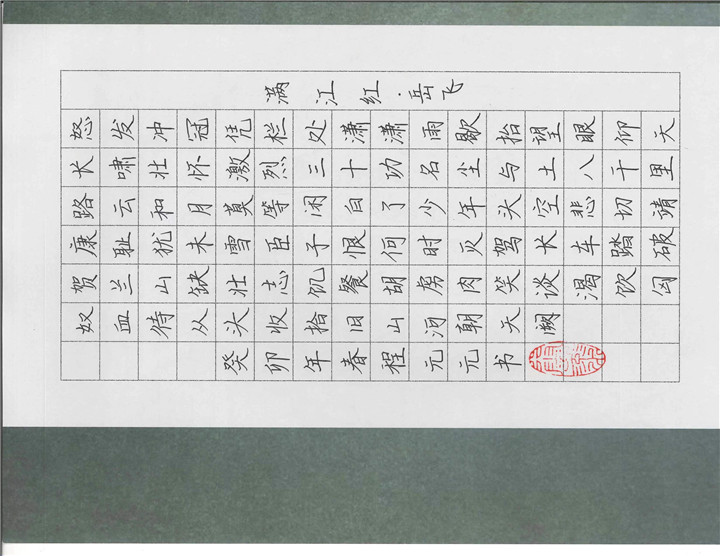 满江红·岳飞
怒发冲冠凭栏处潇潇雨歇抬望眼仰天
长啸壮怀激烈三十功名尘与土八千里
路云和月莫等闲白了少年头空悲切靖
康耻犹未雪臣子恨何时灭驾长车踏破
贺兰山缺壮志饥餐胡虏肉笑谈渴饮匈
奴血待从头收拾旧山河朝天阙
癸卯年春程元元书